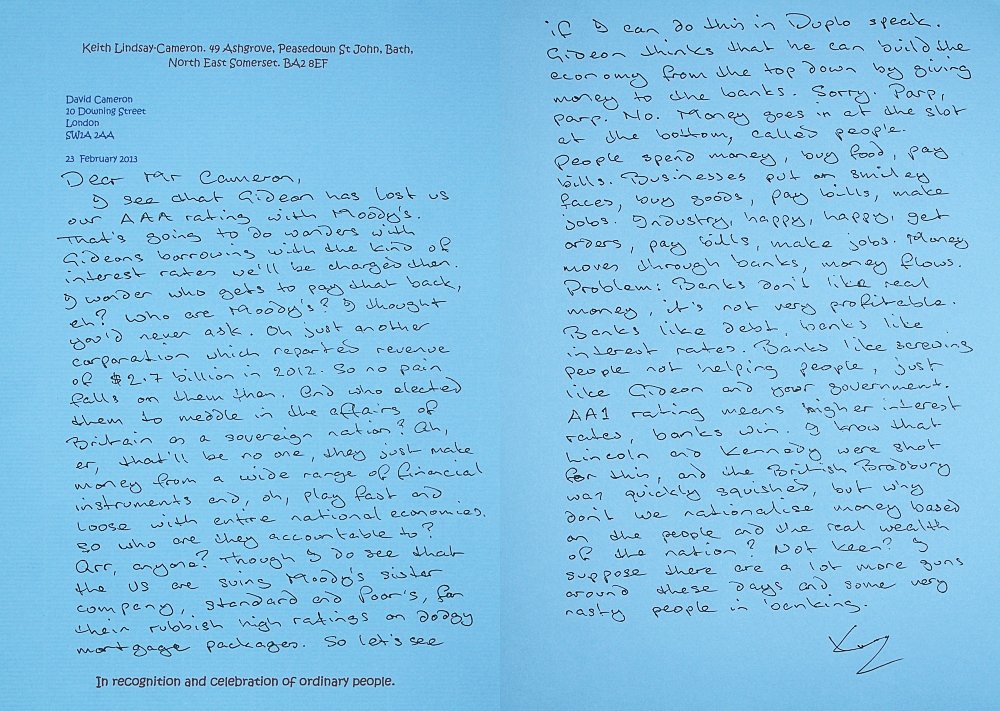 Keith Lindsay-Cameron. 49 Ashgrove, Peasedown St John, Bath,
North East Somerset. BA2 8EF
David Cameron
10 Downing Street
London
SW1A 2AA
23 February 2013
Dear Mr Cameron,
I see that Gideon has lost us
our AAA rating with Moody's.
That's going to do wonders with
Gideons borrowing with the kind of
interest rates we'll be charged then.
I wonder who gets to pay that back,
eh? Who are Moody's? I thought
you'd never ask. Oh just another
corporation which reported revenue
of $2.7 billion in 2012. So no pain
falls on them then. And who elected
them to meddle in the affairs of
Britain as a sovereign nation? Ah,
er, that'll be no one, they just make
money from a wide range of financial
instruments and, oh, play fast and
loose with entire national economies.
So who are they accountable to?
Arr, anyone? Though I do see that
the US are suing Moody's sister
company, Standard and Poor's, for
their rubbish high ratings on dodgy
mortgage packages. So let's see
In recognition and celebration of ordinary people.
if I can do this in Duplo speak.
Gideon thinks that he can build the
economy from the top down by giving
money to the banks. Sorry. Parp,
parp. No. Money goes in at the slot
at the bottom, called people.
People spend money, buy food, pay
bills. Businesses put on smiley
faces, buy goods, pay bills, make
jobs. Industry, happy, happy, get
orders, pay bills, make jobs. Money
moves through banks, money flows.
Problem: Banks don't like real
money, it's not very profitable.
Banks like debt, banks like
interest rates. Banks like screwing
people not helping people, just
like Gideon and your government.
AA1 rating means higher interest
rates, banks win. I know that
Lincoln and Kennedy were shot
for this, and the British Bradbury
was quickly squished, but why
don't we nationalise money based
on the people and the real wealth
of the nation? Not keen? I
suppose there are a lot more guns
around these days and some very
nasty people in banking.